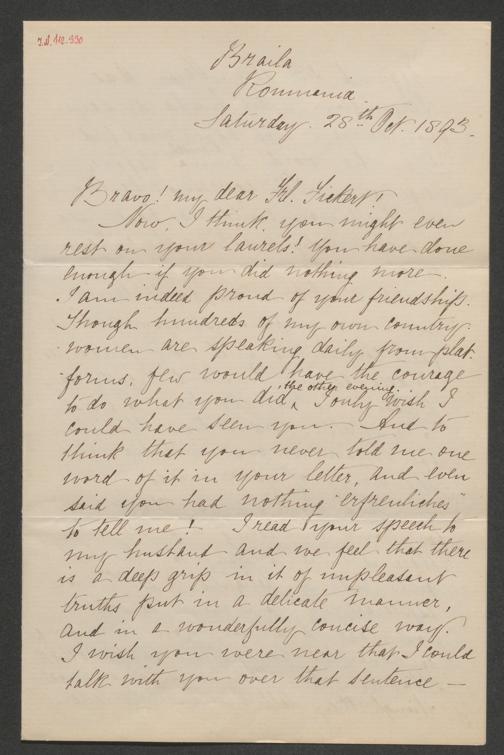 Braila
Roumania
Saturday. 28th Oct. 1893.
Bravo! my dear Frl. Fickert!
Now, I think, you might even
rest on your laurels! You have done
enough if you did nothing more.
I am indeed proud of your friendship.
Though hundreds of my own country-
women are speaking daily from plat-
forms, few would have the courage
to do what you did, the other evening. I only wish I
could have seen you. And to
think that you never told me one
word of it in your letter, and even
said you had nothing "erfreuliches"
to tell me! I read your speech to
my husband and we feel that there
is a deep grip in it of unpleasant
truths put in a delicate manner,
and in a wonderfully concise way.
I wish you were near that I could
talk with you over that sentence —